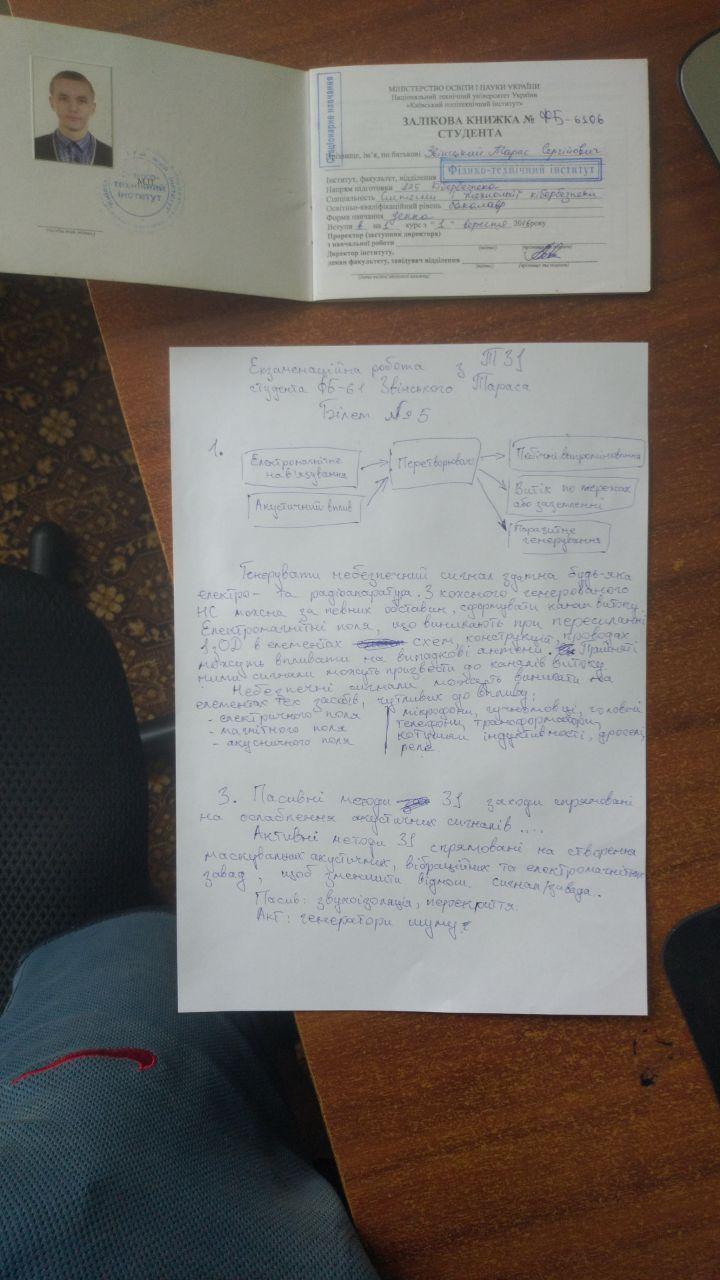 МІНІСТЕРСТВО ОСВІТИ І НАУКИ УКРАЇНИ
Національний технічний університет України
«Київський політехнічний інститут»
ЗАЛІКОВА КНИЖКА № ФБ-6106
СТУДЕНТА
Стаціонарне навчання
Прізвище, ім'я, по батькові Звінський Тарас Сергійович
Інститут, факультет, відділення Фізико-технічний інститут
Напрям підготовки 125 Кібербезпека
Спеціальність Системи і технології кібербезпеки
Освітньо-кваліфікаційний рівень бакалавр
Форма навчання денна
Вступив на 1 курс з "1" вересня 2016 року
Проректор (заступник директора)
з навчальної роботи
(підпис)
Директор інституту,
декан факультету, завідувач відділення
(підпис)
МП
Екзаменаційна робота з ТЗІ
студента ФБ-61 Звінського Тараса
Білет №5
1.
Електромагнітне нав'язування
Акустичний вплив
Перетворювач
Побічні випромінювання
Витік по мережах або заземленні
Паразитне генерування
Генерувати небезпечний сигнал здатна будь-яка
електро- та радіоапаратура. З кожного генерованого
НС можна за певних обставин, сформувати канал витоку.
Електромагнітні поля, що виникають при пересиланні
ІзОД в елементах схем, конструкцій, проводах
можуть впливати на випадкові антени. Прийняті
ними сигнали можуть призвести до каналів витоку
Небезпечні сигнали можуть виникати на
елементах тех засобів, чутливих до впливу:
- електричного поля
- магнітного поля
- акусничного поля
мікрофони, гучномовці, головні
телефони, трансформатори,
котушки індуктивності, дроселі,
реле
3. Пасивні методи ЗІ заходи спрямовані
на ослаблення акустичних сигналів ....
Активні методи ЗІ спрямовані на створення
маскувальних акустичних, вібраційних та електромагнітних
завад, щоб зменшити віднош. сигнал/завада..
Пасив: звукоізоляція, перекриття.
Акт: генератори шуму